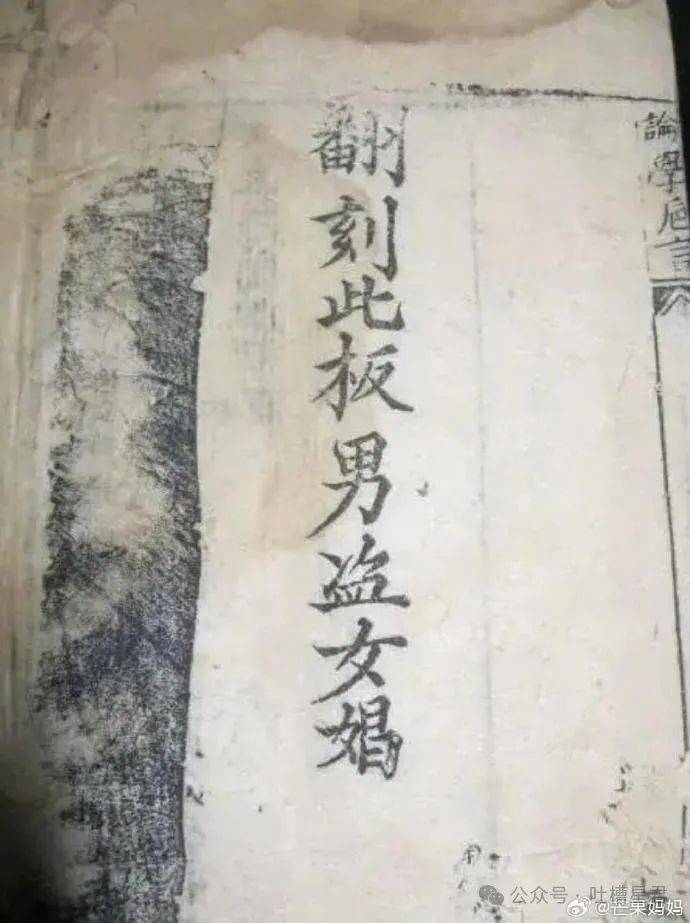 翻刻此板男盗女娼
論學卮言
公众号·吐槽星君
@芒果妈妈